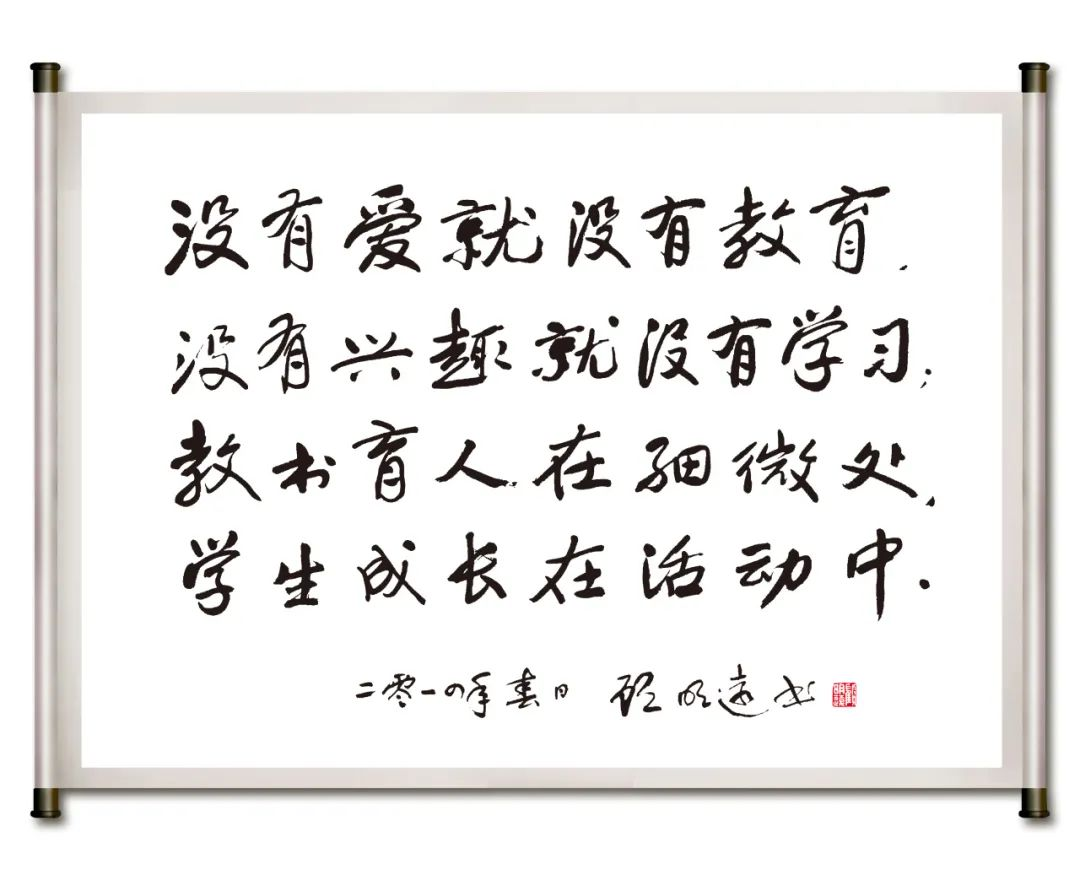 没有爱就没有教育,
没有兴趣就没有学习;
教书育人在细微处,
学生成长在活动中.
二零一四年春日 顾明远书